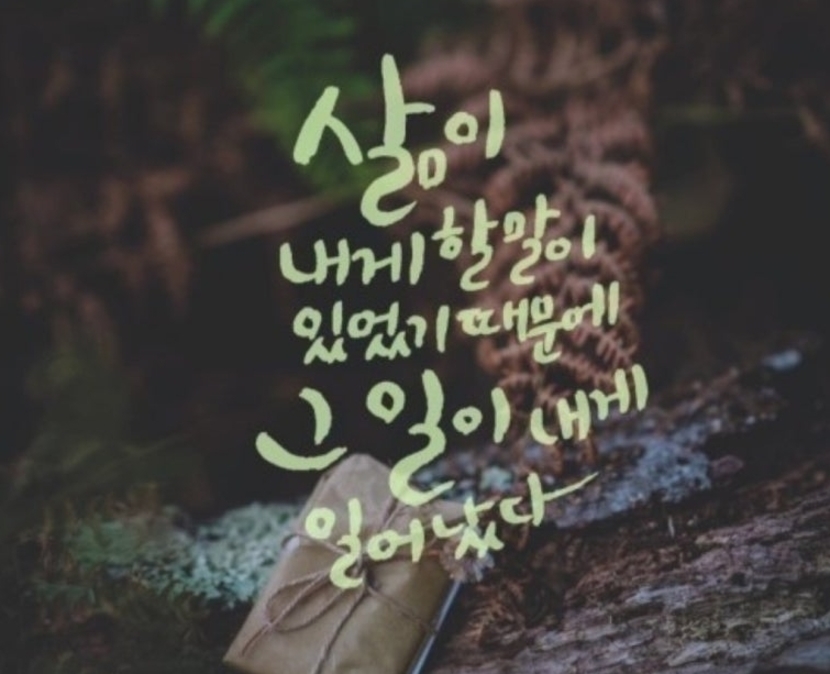 삶이
내게 할 말이
있었기 때문에
그 일이 내게
일어났다